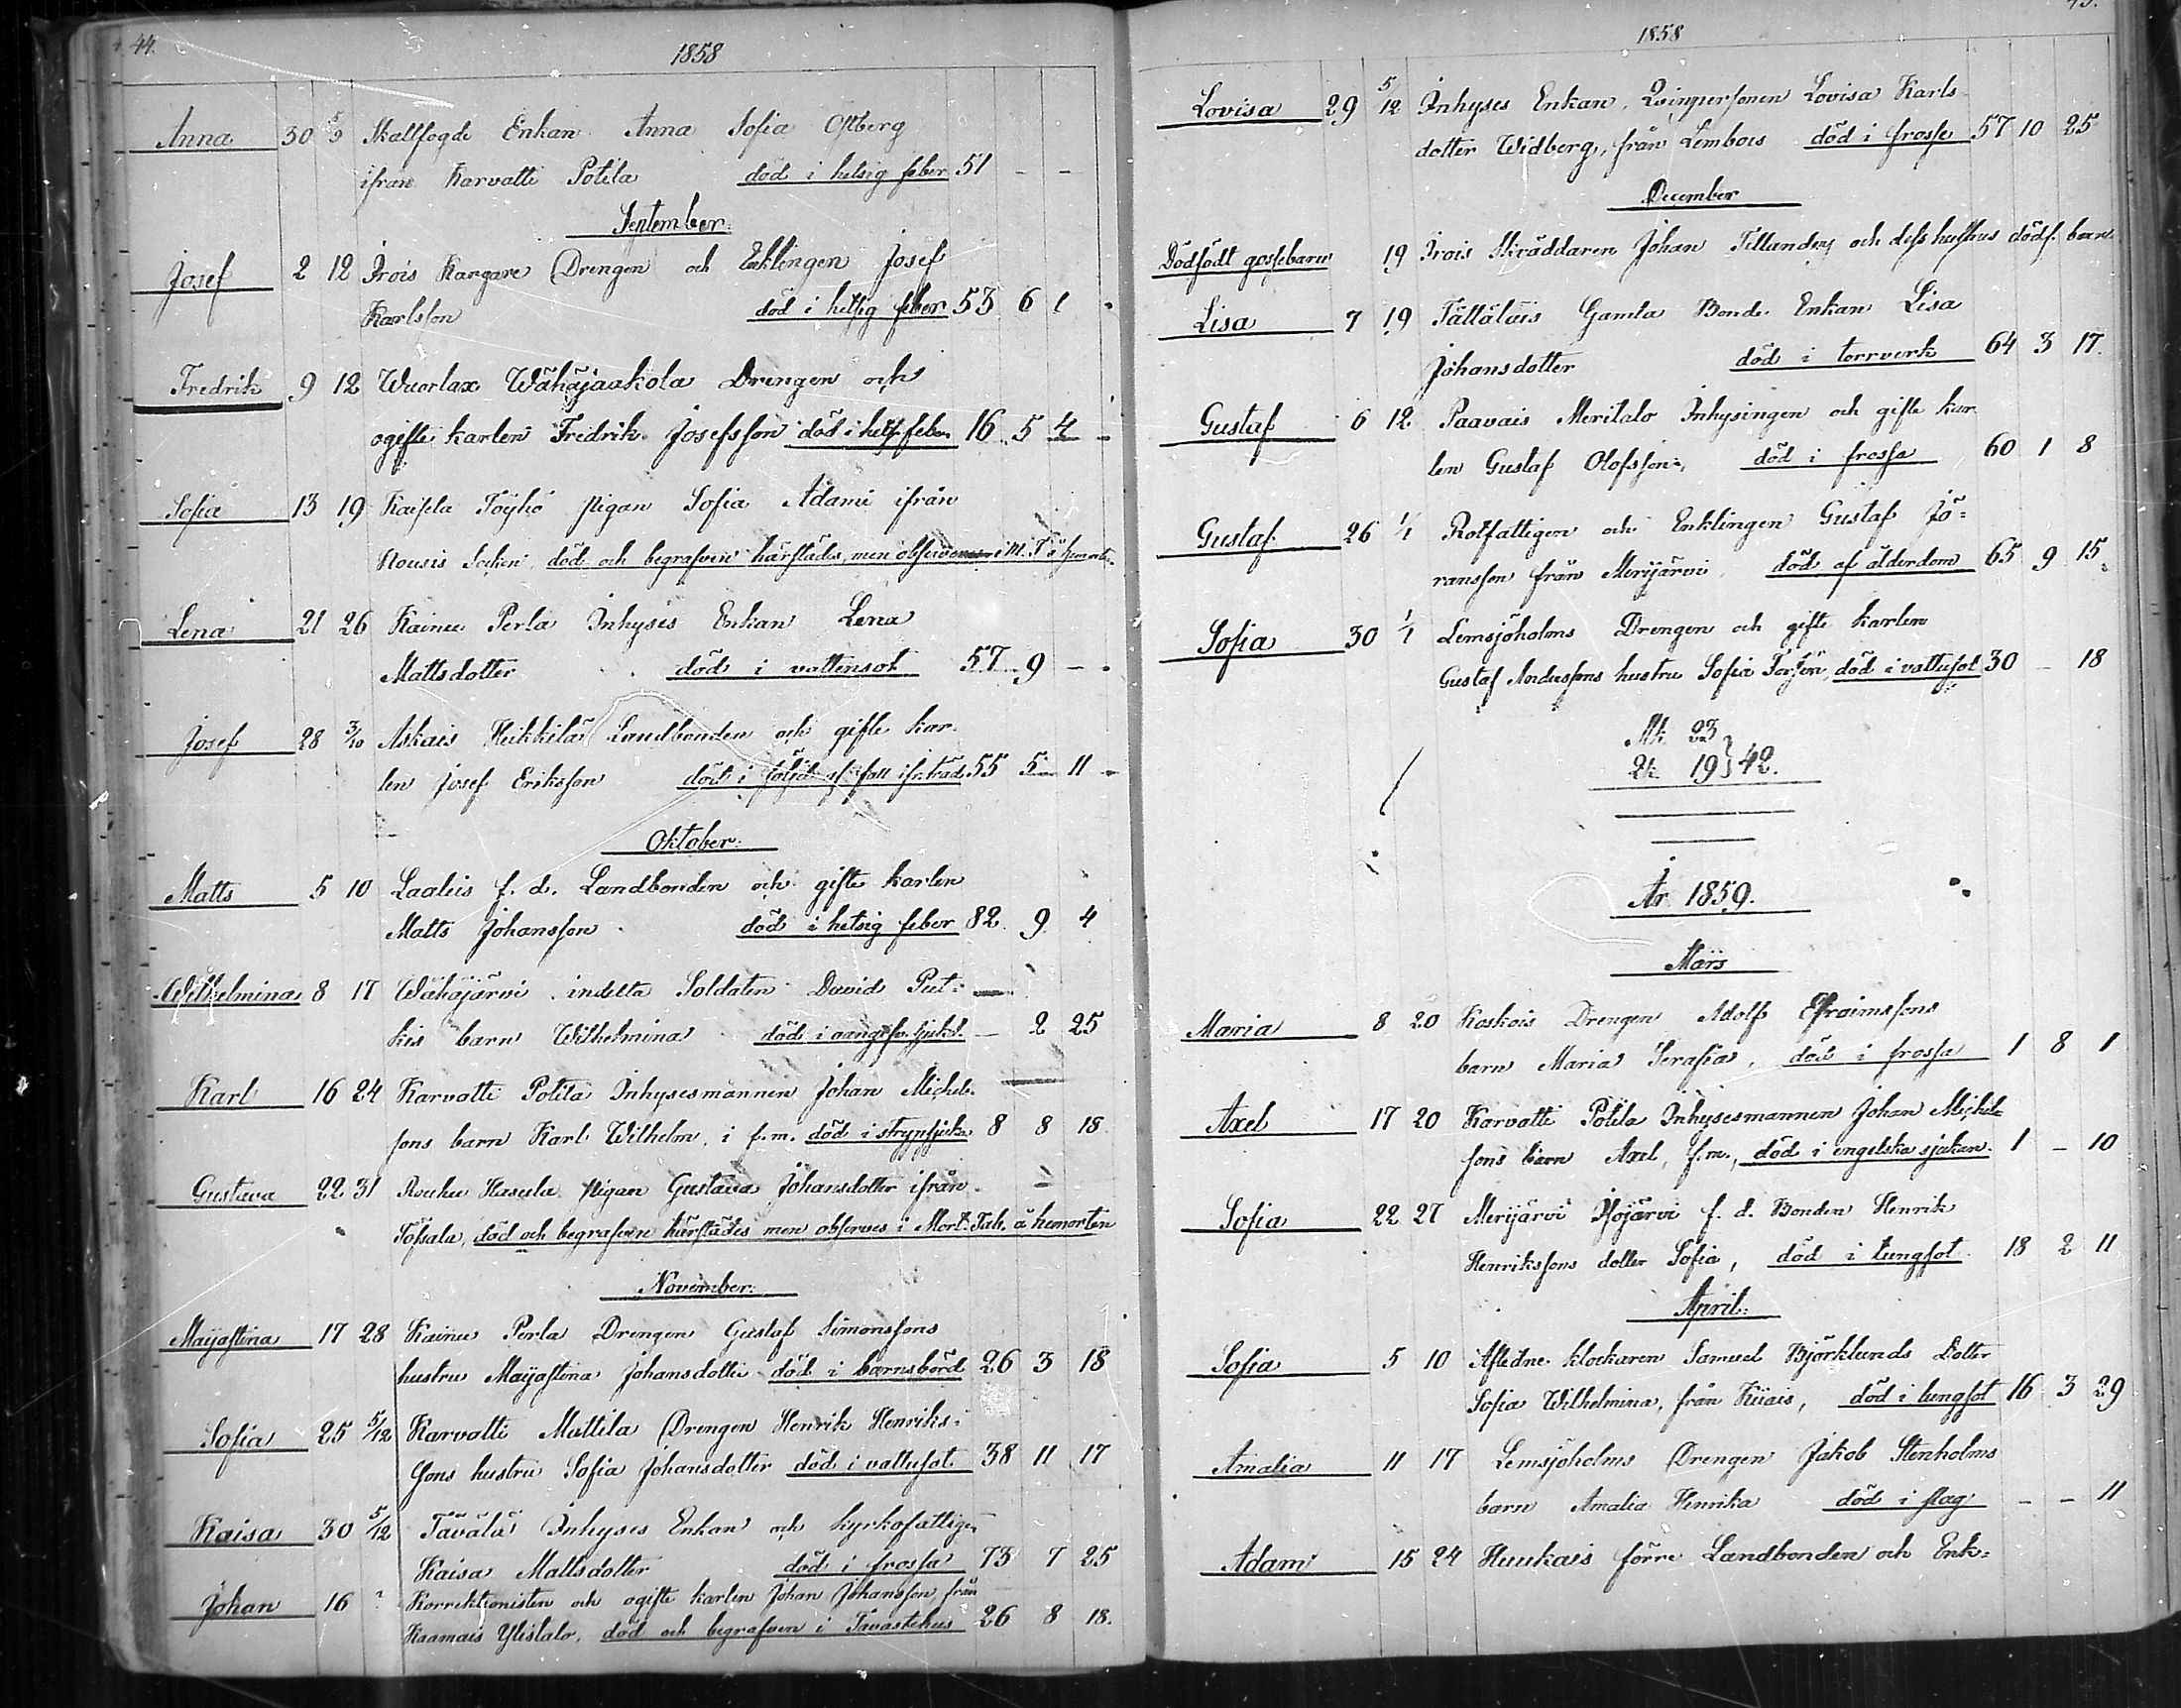 44.
1858
Anna 30 5/9 Skallfogde Enkan Anna Sofia Ostberg
ifran Karvatti Potila död i hetsig feber 51 - -
September.
Josef 2 12 Irois Kangare Drengen och Enklingen Josef
Karlsson död i hetsig feber 53 6 1
Fredrik 9 12 Wuorlax Wähäjaakola Drengen och
ogifte karlen Fredrik Josefsson död i hets. feber 16 5 4
Sofia 13 19 Kaisela Töykö pigan Sofia Adami ifrån
Nousis Socken, död och begrafven härstädes, men observeras i M. T. å hemorten.
Lena 21 26 Kainu Perla Inhyses Enkan Lena
Mattsdotter död i vattensot 57 9 -
Josef 28 3/10 Askais Heikkilä Landbonden och gifte kar
len Josef Eriksson död i följd af fall ifr. träd. 55 5 11
Oktober.
Matts 5 10 Laaleis f. d. Landbonden och gifte karlen
Matts Johansson död i hetsig feber 82 9 4
Wilhelmina 8 17 Wähäjärvi indelta Soldaten David Put-
kis barn Wilhelmina död i - 2 25
Karl 16 24 Karvatti Potila Inhysesmannen Johan Michels-
sons barn Karl Wilhelm, i f.m. död i strypsjuka 8 8 18
Gustava 22 31 Rouhu Hasula pigan Gustava Johansdotter ifrån
Töfsala, död och begrafven härstädes men observes i Mort. Tab. å hemorten
November.
Maijastina 17 28 Kainu Perla Drengen Gustaf Simonssons
hustru Maijastina Johansdotter död i barnsbörd 26 3 18
Sofia 25 5/12 Karvatti Mattila Drengen Henrik Henriks-
sons hustru Sofia Johansdotter död i vattusot 38 11 17
Kaisa 30 5/12 Tävälä Inhyses Enkan och kyrkofattigen
Kaisa Mattsdotter död i frossa 73 7 25
Johan 16 ? Korrektionisten och ogifte karlen Johan Johansson från
Kaamais Ylistalo, död och begrafven i Tavastehus 26 8 18.
1858
Lovisa 29 5/12 Inhyses Enkan, Qvinpersonen Lovisa Karls
dotter Widberg, från Lembois död i frossa 57 10 25
December
Dödfödt gossebarn 19 Irois Skräddaren Johan Tillanders och dess hustrus dödf. barn
Lisa 7 19 Tättäläis Gamla Bonde Enkan Lisa
Johansdotter död i torrverk 64 3 17.
Gustaf 6 12 Paavais Meritalo Inhysingen och gifte kar
len Gustaf Olofsson, död i frossa 60 1 8
Gustaf 26 1/1 Rotfattigen och Enklingen Gustaf Jö-
ransson från Merijärvi död af ålderdom 65 9 15
Sofia 30 1/1 Lemsjöholms Drengen och gifte karlen
Gustaf Anderssons hustru Sofia död i vattusot 30 - 18
Mk 23
Qk 19 } 42.
År 1859.
Mars
Maria 8 20 Koskois Drengen Adolf Efraimssons
barn Maria Serafia, död i frossa 1 8 1
Axel 17 20 Karvatti Potila Inhysesmannen Johan Michels
sons barn Axel, f.m., död i engelska sjukan. 1 - 10
Sofia 22 27 Merijärvi Isojärvi f. d. Bonden Henrik
Henrikssons dotter Sofia, död i lungsot 18 2 11
April.
Sofia 5 10 Aflidne klockaren Samuel Björklunds Dotter
Sofia Wilhelmina, från Kiiais, död i lungsot 16 3 29
Amalia 11 17 Lemsjöholms Drengen Jakob Stenholms
barn Amalia Henrika död i slag - - 11
Adam 15 24 Huukais förre Landbonden och Enk-